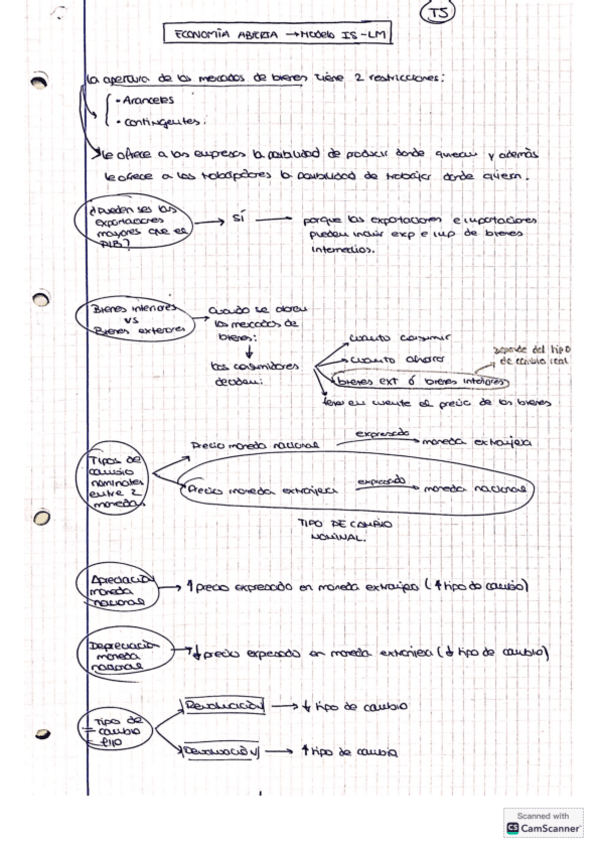 T5
ECONOMÍA ABIERTA → Modelo IS-LM
La apertura de los mercados de bienes tiene 2 restricciones:
• Aranceles
• Contingentes.
le ofrece a las empresas la posibilidad de producir donde quieran y además
le ofrece a los trabajadores la posibilidad de trabajar donde quieran.
¿Pueden ser las exportaciones mayores que el PIB?
→ SÍ — porque las exportaciones e importaciones
pueden incluir exp e imp de bienes
intermedios.
Bienes interiores
vs
Bienes exteriores
cuando se abren
los mercados de
bienes:
↓
los consumidores
deciden:
cuanto consumir
cuanto ahorrar
bienes ext ó bienes interiores
depende del tipo
de cambio real
tener en cuenta el precio de los bienes
Tipos de
cambio
nominales
entre 2
monedas
Precio moneda nacional expresado → moneda extranjera
Precio moneda extranjera expresado → moneda nacional
TIPO DE CAMBIO
NOMINAL.
Apreciación
moneda
nacional
→ ↑ precio expresado en moneda extranjera (↑ tipo de cambio)
Depreciación
moneda
nacional
→ ↓ precio expresado en moneda extranjera (↓ tipo de cambio)
Tipo de
cambio
fijo
→ ↓ tipo de cambio
→ ↑ tipo de cambio
Scanned with
CS CamScanner